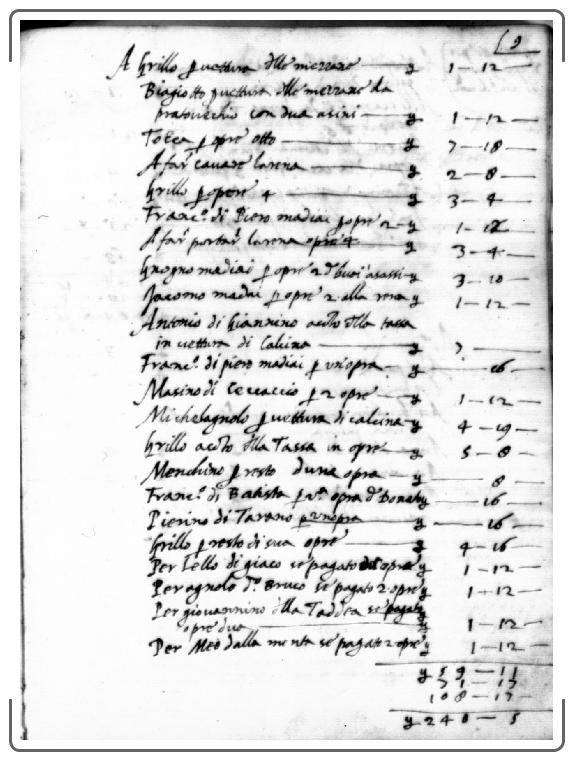 9
A Grillo p vettura dlle mezzane y 1 — 12
Biagiotto p vettura dlle mezzane da
pratovechio con dua asini y 1 — 12
Tocca p opre otto y 7 — 18
A far cavare larena y 2 — 8
Grillo p opere 4 y 3 — 4
Franc.º di Piero madiai p opre 2 y 1 — 12
A far portar larena opre 4 y 3 — 4
madiai p opre 2 d buoi sassi y 3 — 10
Jacomo madiai p opre 2 alla rena y 1 — 12
Antonio di Giannino acoto dlla tassa
in vettura di Calcina y 7 —
Franc.º di piero madiai p un'opra y — 16
Masino di Ceccaccio p 2 opre y 1 — 12
Michelagnolo p vettura di calcina y 4 — 19
Grillo acoto dlla Tassa in opre y 5 — 8
Menchino p resto duna opra y — 8
Franc.º di Batista p opra d Donato y — 16
Pierino di Tarano p unopra y — 16
Grillo p resto di sua opre y 4 — 16
Per Lello di giaco se pagato opre y 1 — 12
Per agnolo d.º Bruco se pagato 2 opre y 1 — 12
Per giovannino dlla Taddea se pagato
opre dua y 1 — 12
Per Meo dalla menta se pagato 2 opre y 1 — 12
y 59 — 11
71 — 17
108 — 17
y 240 — 5